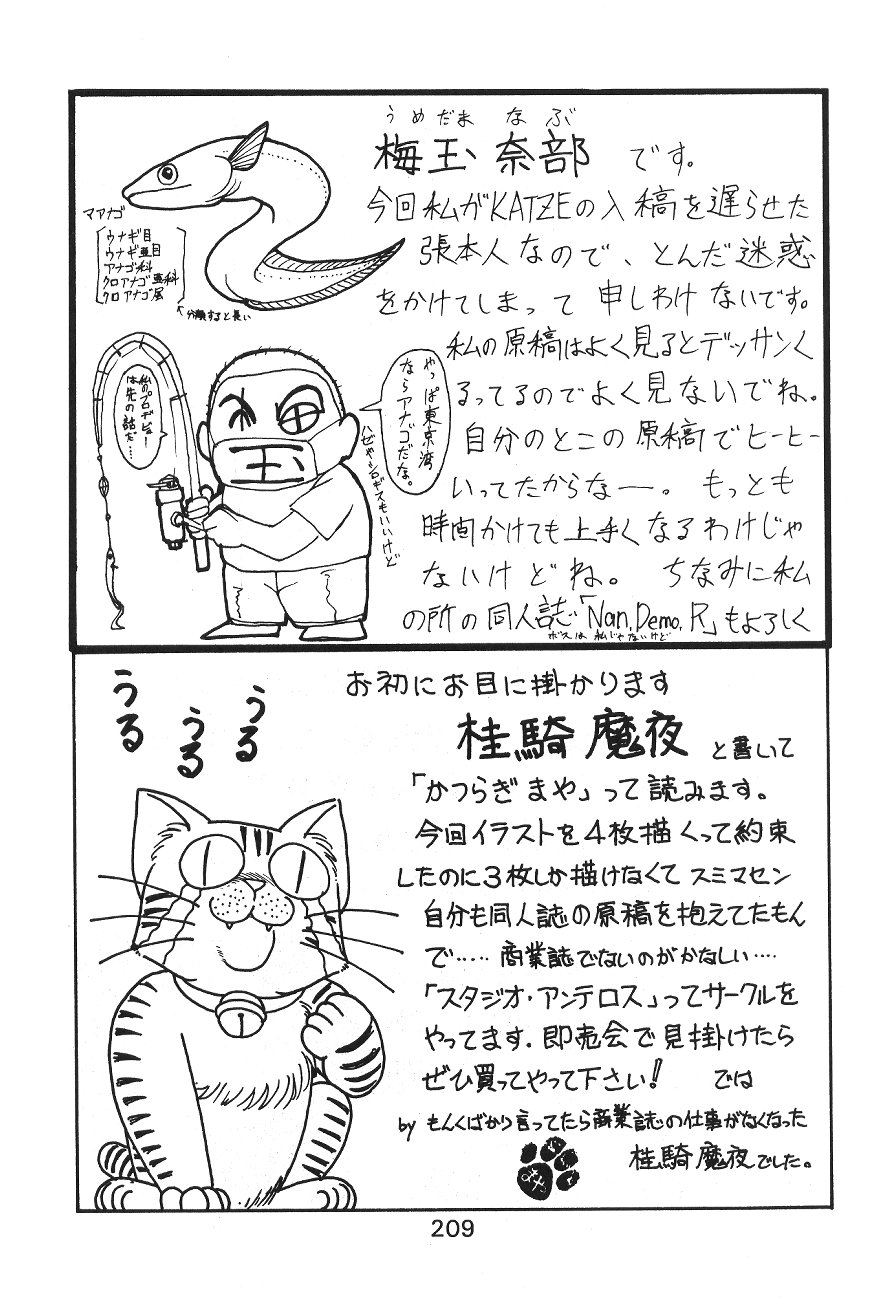 うめだま なぶ
梅玉 奈部 です。
今回私がKATZEの入稿を遅らせた
張本人なので、とんだ迷惑
をかけてしまって 申しわけ ないです。
私の原稿はよく見るとデッサンく
るってるのでよく見ないでね。
自分のとこの原稿でヒーヒー
いってたからなー。 もっとも
時間かけても上手くなるわけじゃ
ないけどね。 ちなみに私
の所の同人誌「Nan.Demo.R」もよろしく
ボスは私じゃないけど
マアナゴ
ウナギ目
ウナギ亜目
アナゴ科
クロアナゴ亜科
クロアナゴ属
↖分類すると長い
やっぱ東京湾
ならアナゴだな。
ハゼやシロギスもいいけど
私のプロデビュー
は先の話だ…
玉
うる
うる
うる
お初にお目に掛かります
桂騎 魔夜 と書いて
「かつらぎまや」って読みます。
今回イラストを4枚描くって約束
したのに3枚しか描けなくてスミマセン
自分も同人誌の原稿を抱えてたもん
で…… 商業誌でないのがかなしい……
「スタジオ・アンテロス」ってサークルを
やってます。即売会で見掛けたら
ぜひ買ってやって下さい! では
by もんくばかり言ってたら商業誌の仕事がなくなった
桂騎魔夜でした。
209